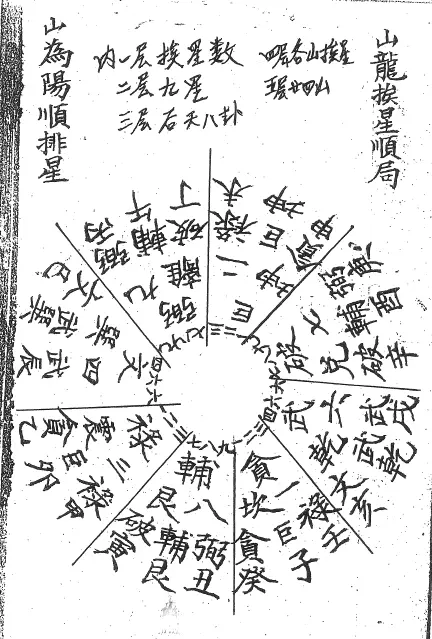 山龍挨星順局
内一层挨星数
二层九星
三层后天八卦
四层各山挨星
五层廿四山
山為陽順排星
巨 二 坤
祿 未
巨 坤
貪 申
破 七 兌
弼 庚
輔 酉
破 辛
武 六 乾
武 戌
武 乾
文 亥
貪 一 坎
祿 壬
巨 子
貪 癸
輔 八 艮
弼 丑
輔 艮
破 寅
祿 三 震
祿 甲
巨 卯
貪 乙
文 四 巽
武 辰
武 巽
文 巳
弼 九 離
弼 丙
輔 午
破 丁